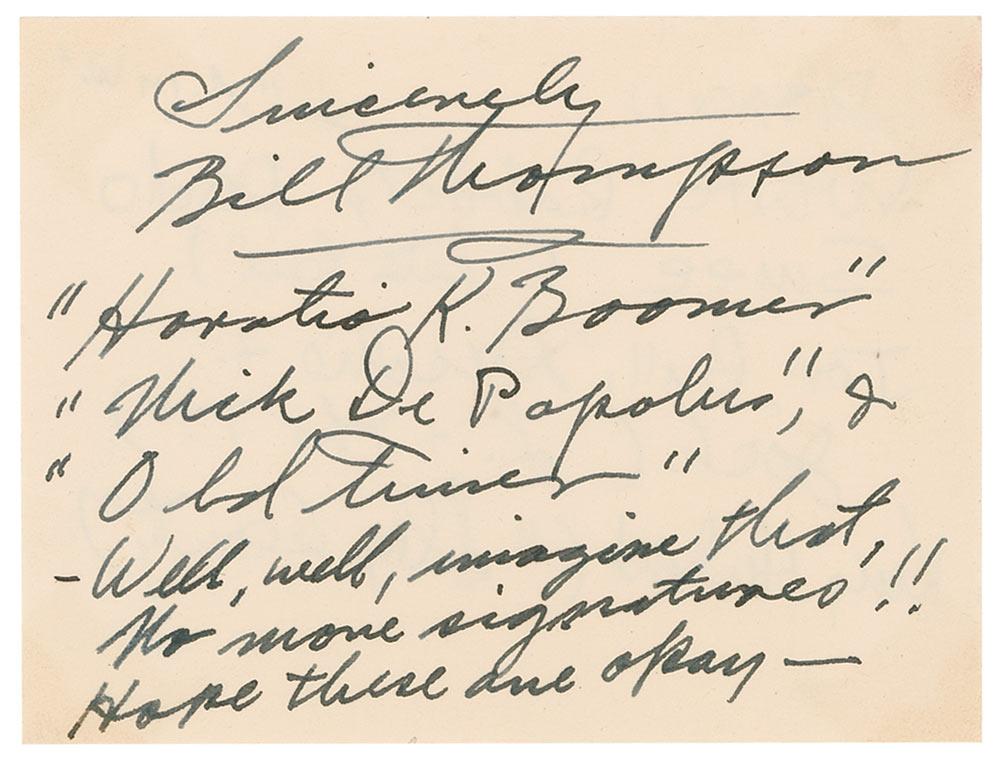 Sincerely
Bill Thompson
"Horatio K. Boomer"
"Nick De Popolus", &
"Old Timer"
- Well, well, imagine that,
No more signatures!!
Hope these are okay —